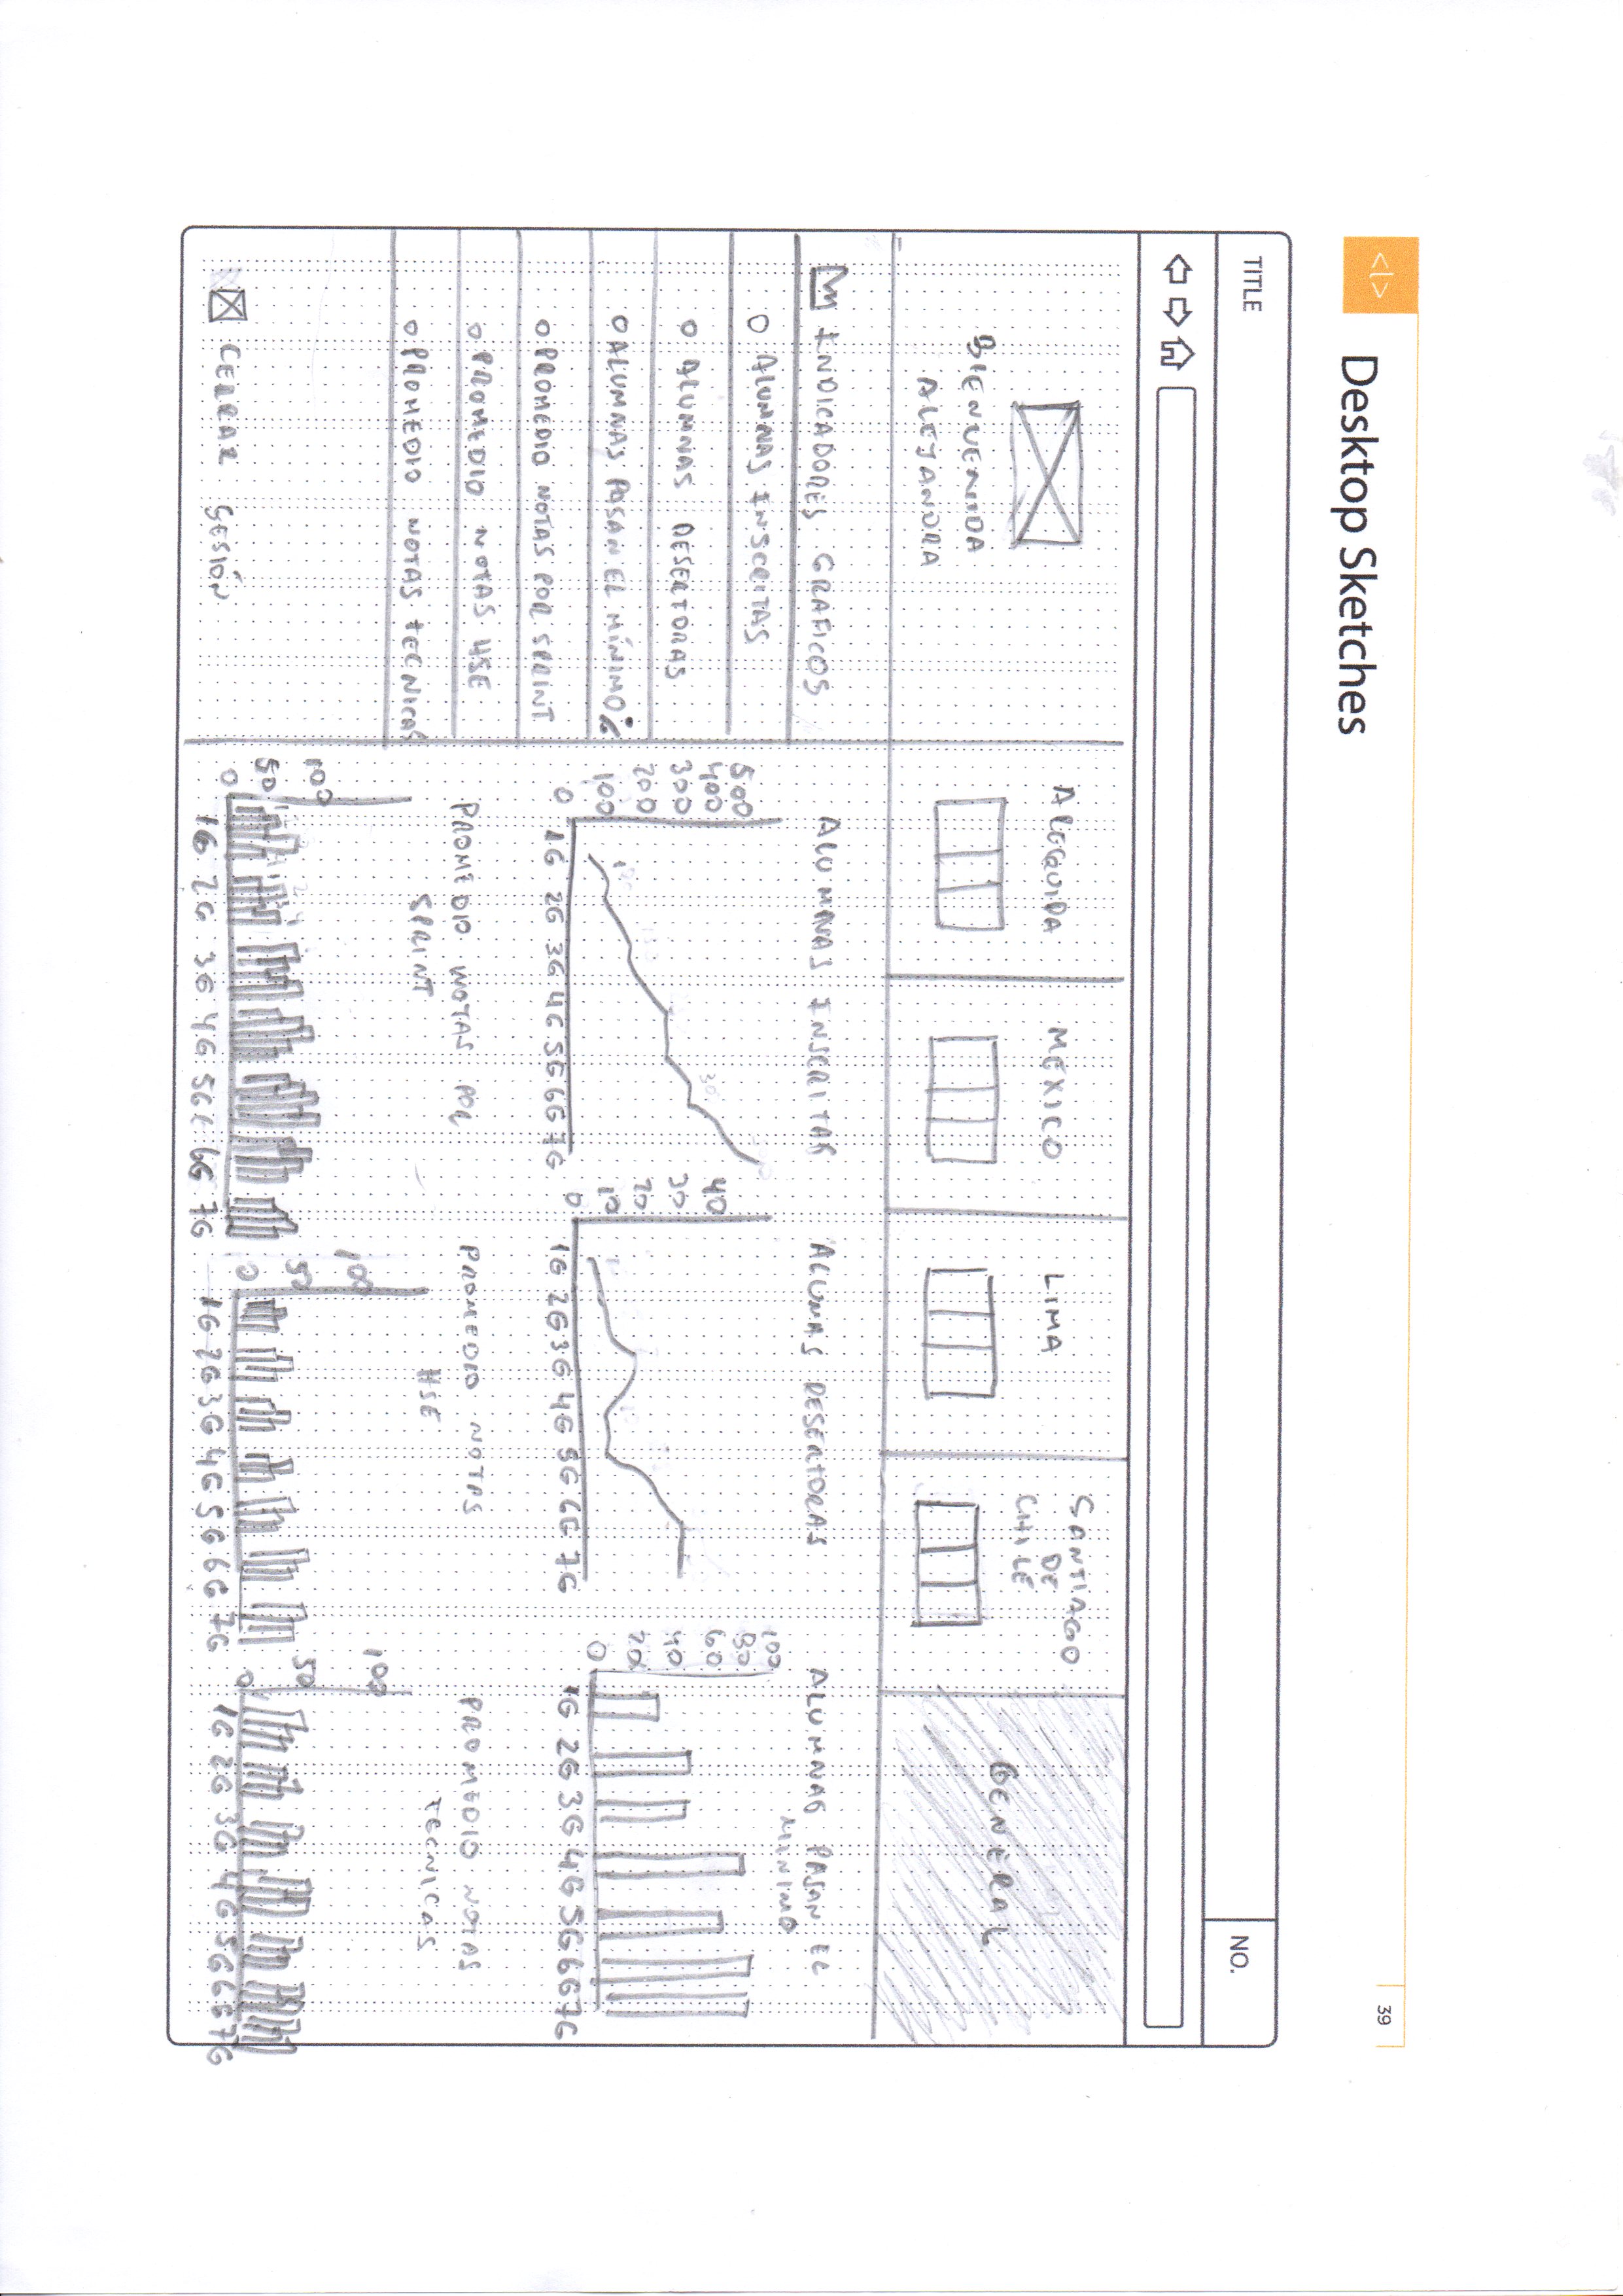 <|>
Desktop Sketches
39
TITLE
NO.
BIENVENIDA
ALEJANDRA
INDICADORES GRAFICOS
O ALUMNAS INSCRITAS
O ALUMNAS DESERTORAS
O ALUMNAS PASAN EL MÍNIMO
O PROMEDIO NOTAS POR SPRINT
O PROMEDIO NOTAS HSE
O PROMEDIO NOTAS TECNICAS
CERRAR SESIÓN
AREQUIPA
MEXICO
LIMA
SANTIAGO
DE
CHILE
GENERAL
ALUMNAS INSCRITAS
500
400
300
200
100
0
1G 2G 3G 4G 5G 6G 7G
ALUMAS DESERTORAS
40
30
20
10
0
1G 2G 3G 4G 5G 6G 7G
ALUMNAS PASAN EL
MINIMO
100
80
60
40
20
0
1G 2G 3G 4G 5G 6G 7G
PROMEDIO NOTAS POR
SPRINT
100
50
0
1G 2G 3G 4G 5G 6G 7G
PROMEDIO NOTAS
HSE
100
50
0
1G 2G 3G 4G 5G 6G 7G
PROMEDIO NOTAS
TECNICAS
100
50
0
1G 2G 3G 4G 5G 6G 7G